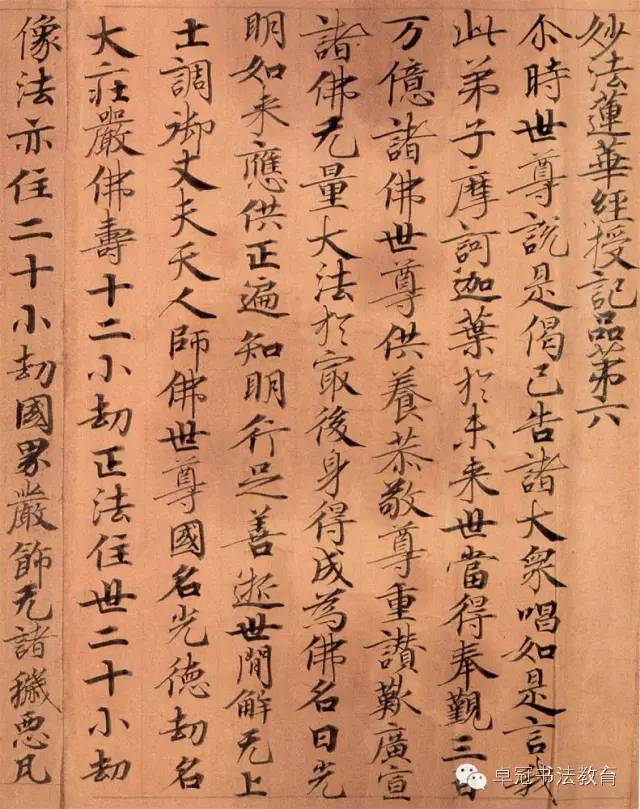 妙法蓮華經授記品第六
尒時世尊說是偈已告諸大衆唱如是言我
此弟子摩訶迦葉於未来世當得奉覲三百
万億諸佛世尊供養恭敬尊重讃歎廣宣
諸佛无量大法於冣後身得成為佛名曰光
明如来應供正遍知明行足善逝世閒解无上
士調御丈夫天人師佛世尊國名光德劫名
大莊嚴佛壽十二小劫正法住世二十小劫
像法亦住二十小劫國界嚴飾无諸穢惡瓦
卓冠书法教育